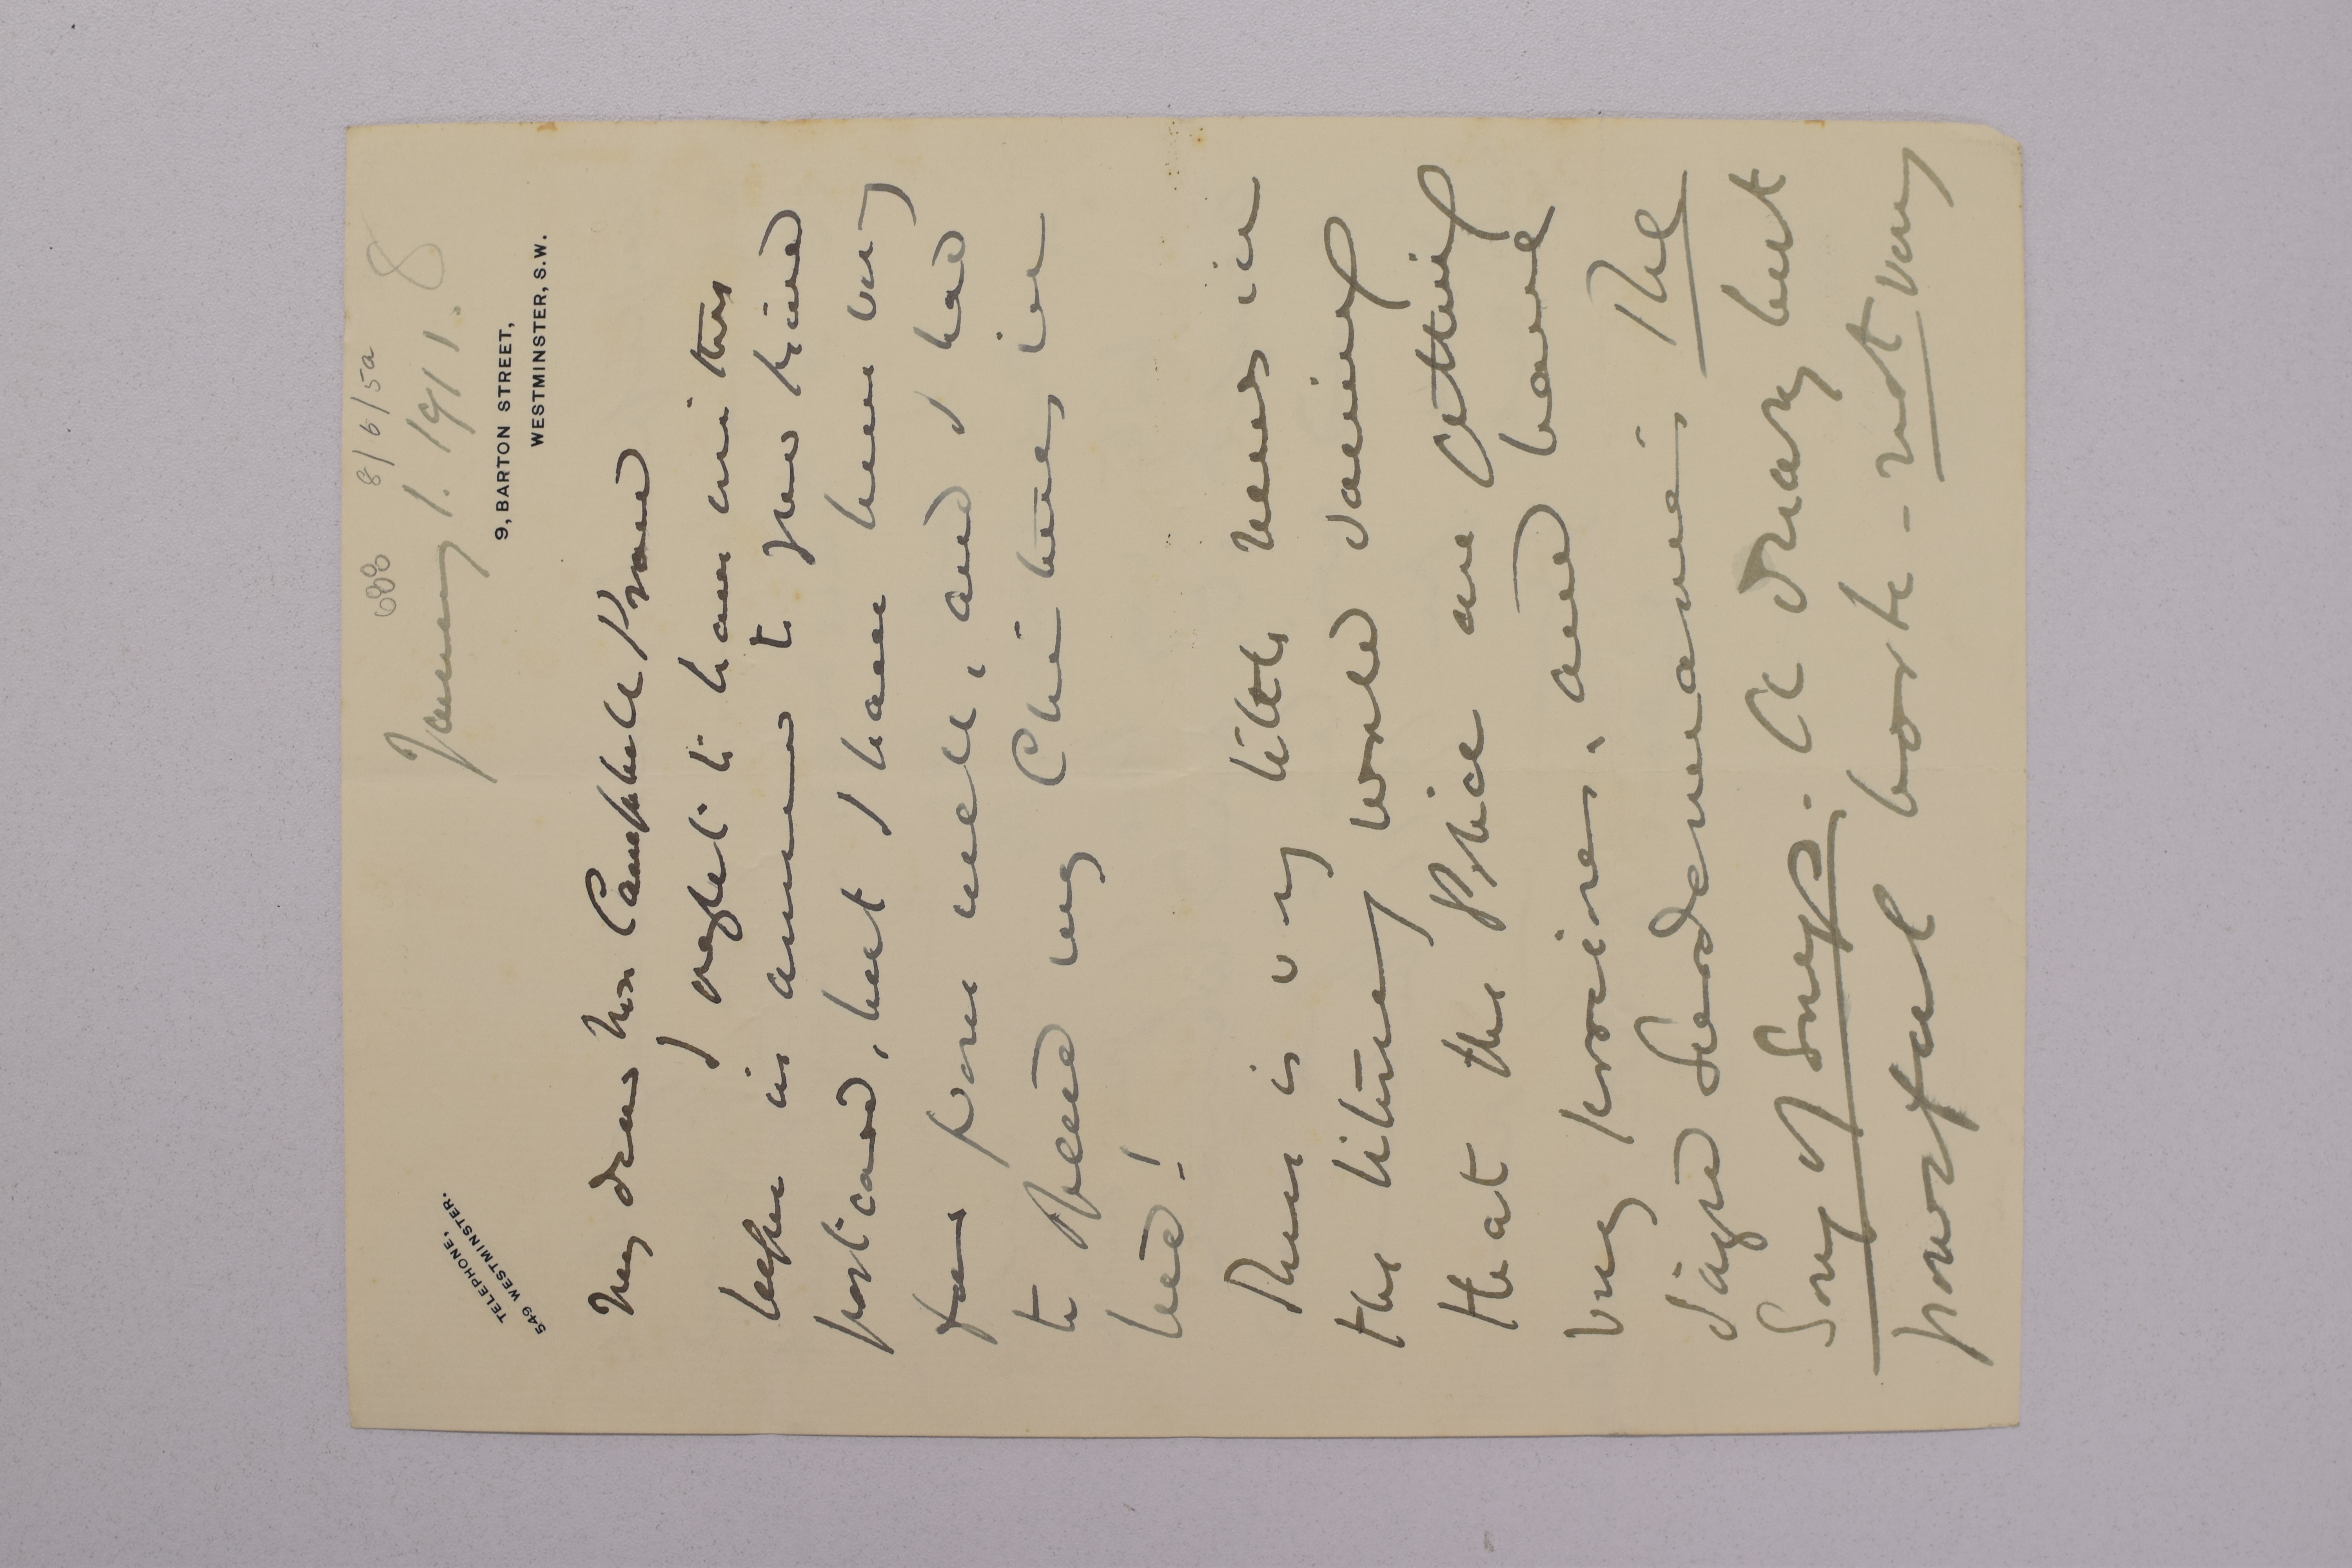 688 8/6/5a
January 1. 1911. 8
TELEPHONE,
549 WESTMINSTER.
9, BARTON STREET,
WESTMINSTER, S.W.
My dear Mrs Campbell Praed
I ought to have written
before in answer to your kind
post card, but I have been very
far from well, and I had
to spend my Christmas in
bed!
There is very little news in
the literary world saving
that the Price are getting
very knowing, and have
Sudermann's The
Song of Songs. A dreary but
powerful work - not very